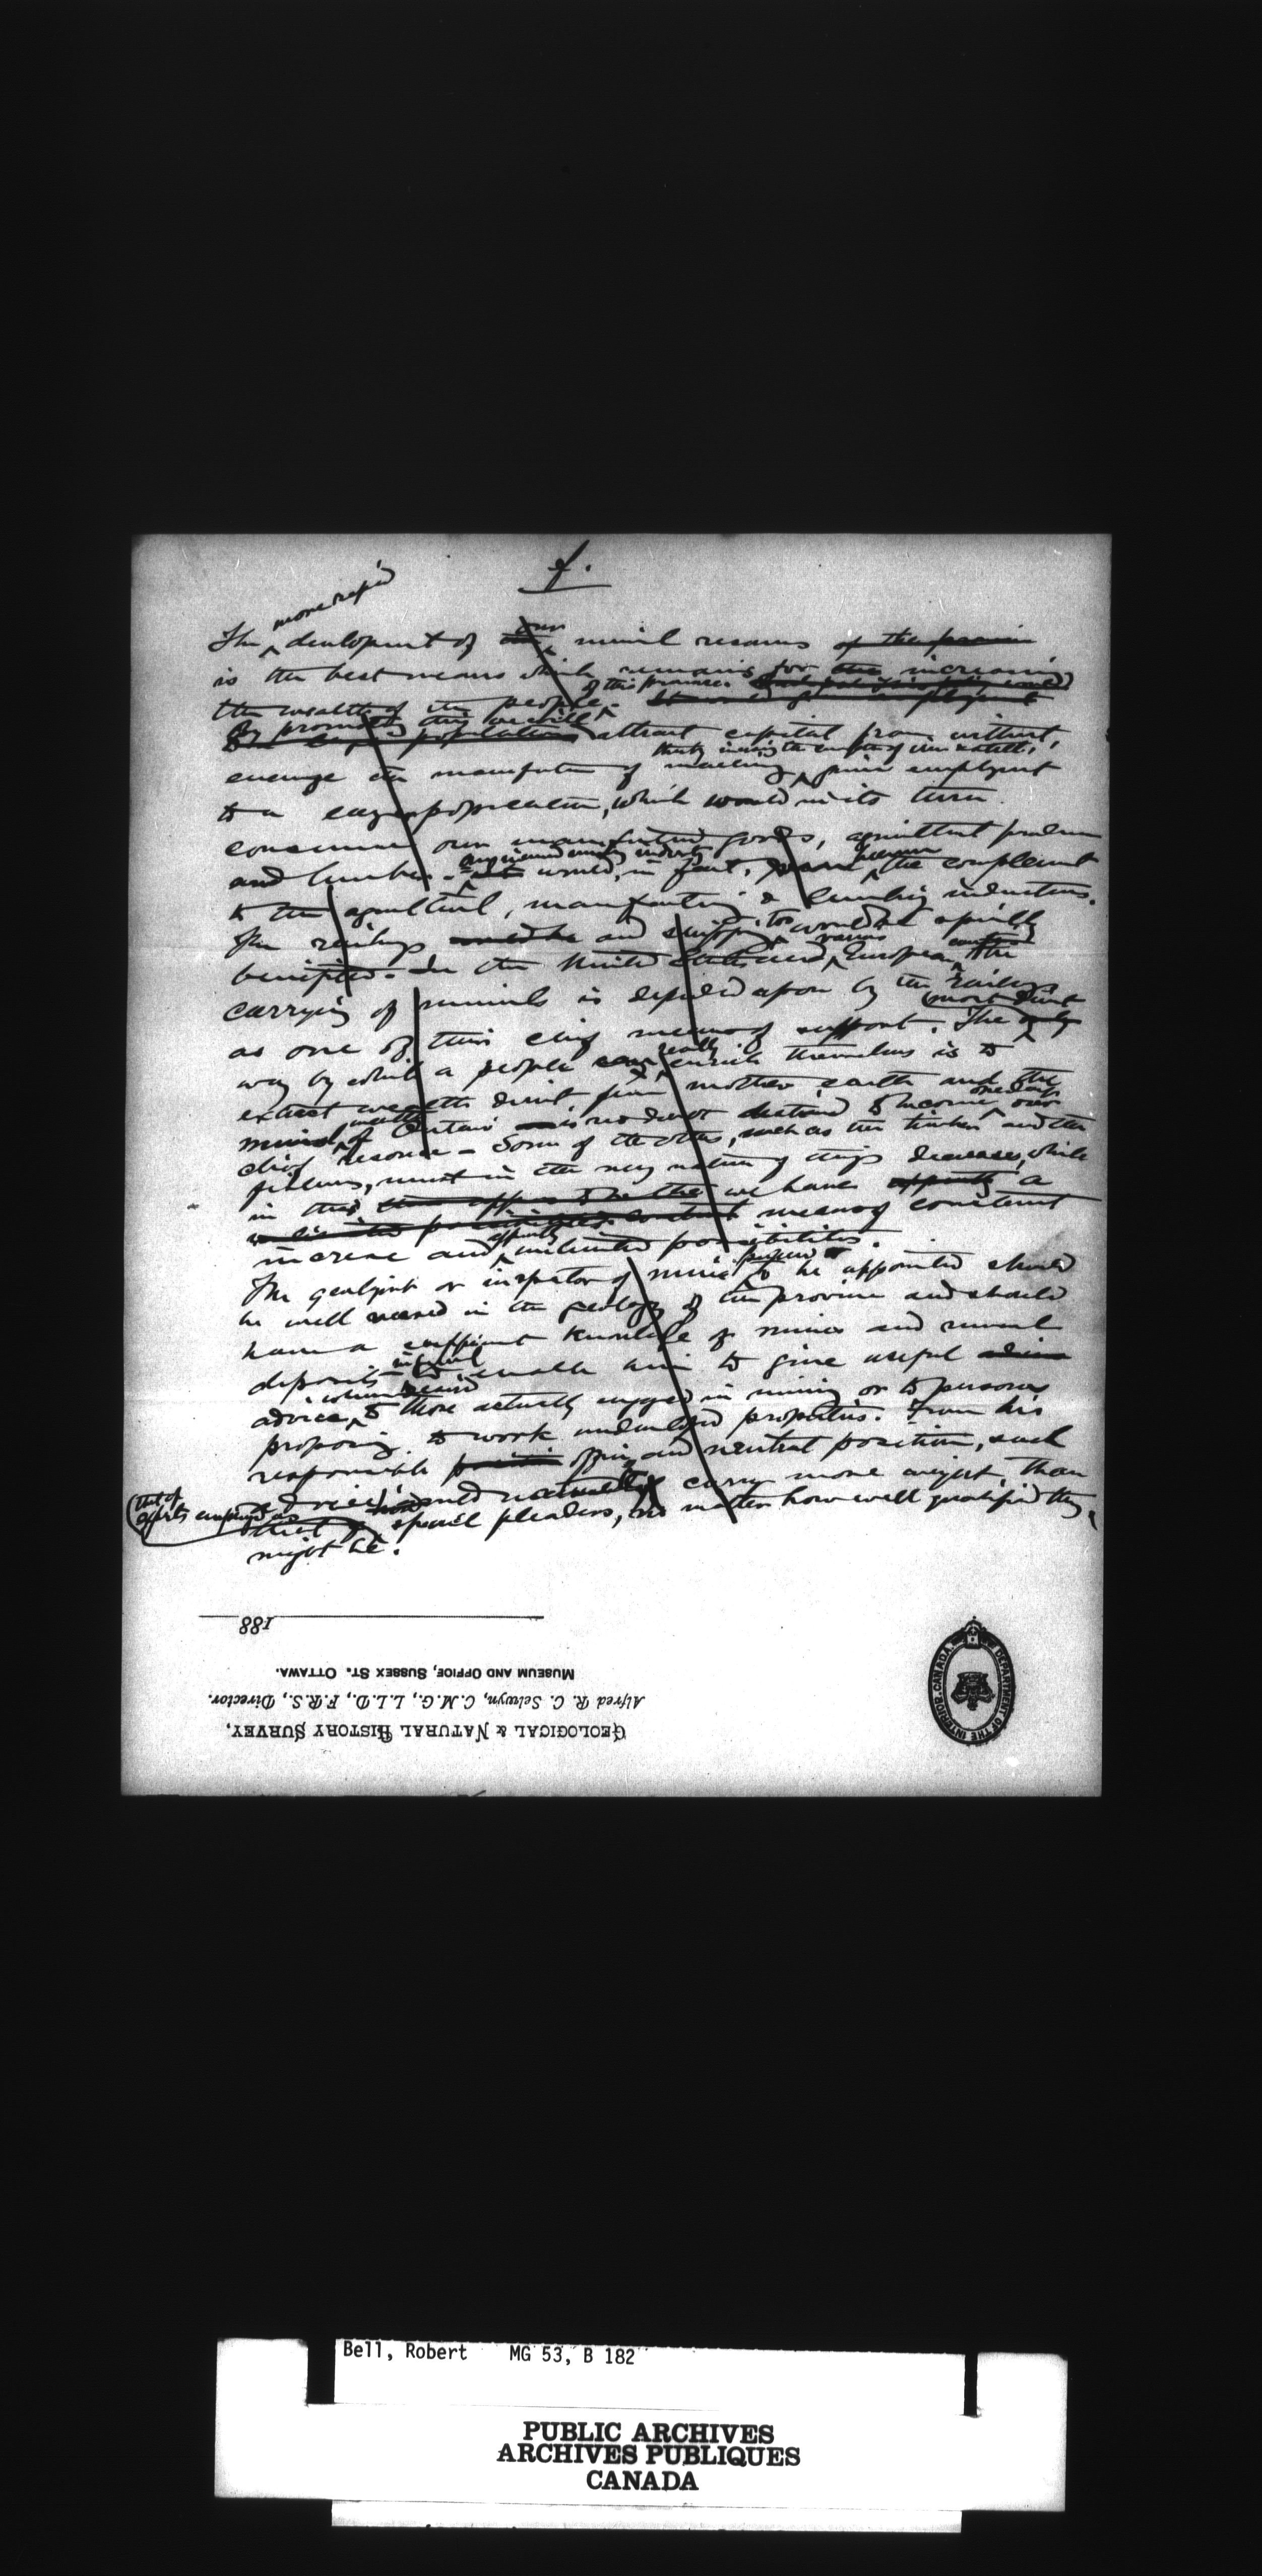 f.
more rapid
The development of our mineral resources of the province
is the best means which remains for the increasing
of this province.
the wealth of the people.
By promoting this we will attract capital from without,
encourage the manufacture of machinery, give employment
to a large population, which would in its turn
consume our manufactured goods, agricultural produce
and lumber. It would, in fact, become the complement
to the agricultural, manufacturing & lumbering industries.
The railways would be and shipping too would be specially
benefited. In the United States and various European countries the
carrying of minerals is depended upon by the railways
as one of their chief means of support. The only
most direct
way by which a people can really enrich themselves is to
extract wealth direct from mother earth and the
mineral wealth of Ontario is no doubt destined to become one day our
chief resource – Some of the others, such as the timber and the
fisheries, must in the very nature of things decrease, while
in this we have apparently a
means of constant
increase and apparently unlimited possibilities.
The geologist or inspector of mines to be appointed should
be well versed in the geology of the province and should
have a sufficient knowledge of mines and mineral
deposits to enable him to give useful
informal
when desired
advice, to those actually engaged in mining or to persons
proposing to work undeveloped properties. From his
responsible position office and neutral position, such
advice would naturally carry more weight, than
(that of
experts employed as
that of special pleaders, no matter how well qualified they
might be.
188
MUSEUM AND OFFICE, SUSSEX ST. OTTAWA.
Alfred R. C. Selwyn, C.M.G., LL.D., F.R.S., Director.
GEOLOGICAL & NATURAL HISTORY SURVEY,
DEPARTMENT OF THE INTERIOR. CANADA.
Bell, Robert MG 53, B 182
PUBLIC ARCHIVES
ARCHIVES PUBLIQUES
CANADA